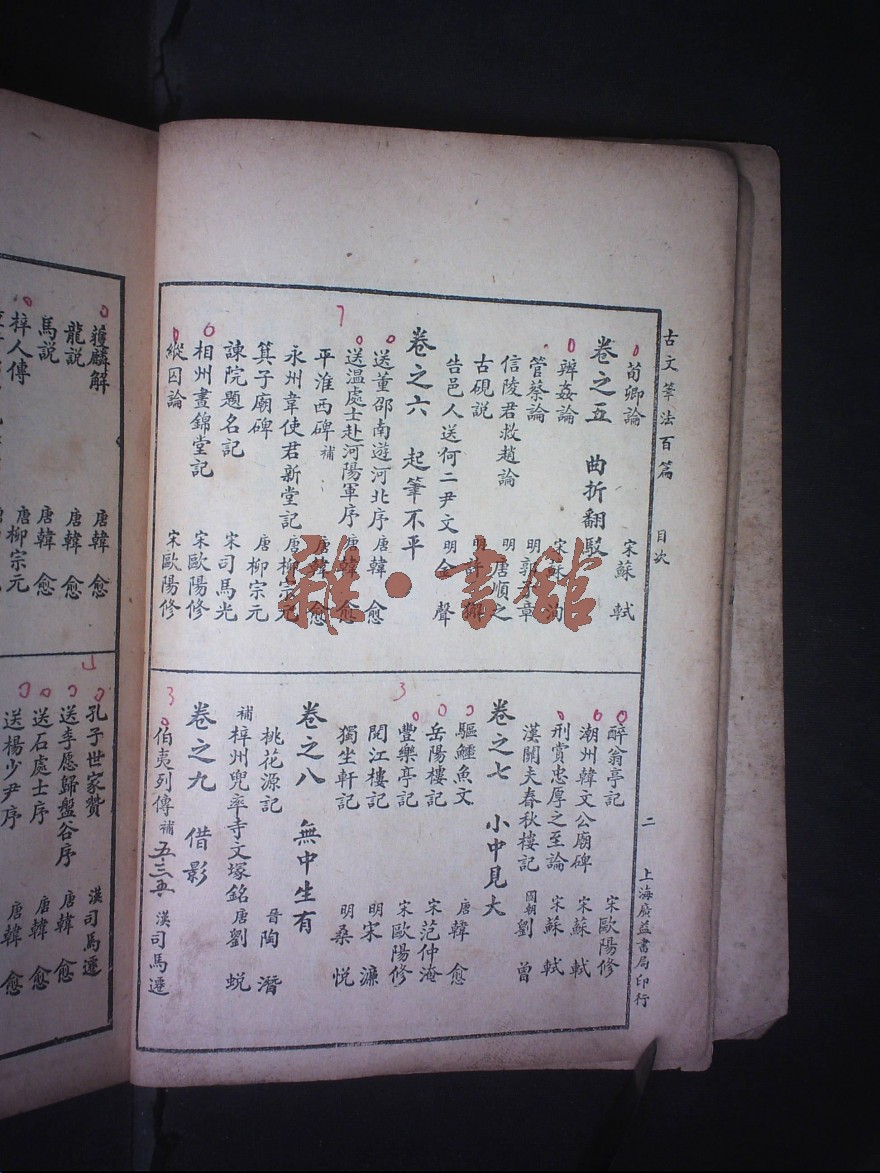 古文筆法百篇　目次　二　上海廣益書局印行
荀卿論　宋蘇軾
卷之五　曲折翻駁
辨姦論　宋蘇洵
管蔡論　明郭子章
信陵君救趙論　明唐順之
古硯說　明許獬
告邑人送何二尹文　明金聲
卷之六　起筆不平
送董邵南遊河北序　唐韓愈
送溫處士赴河陽軍序　唐韓愈
平淮西碑補　唐韓愈
永州韋使君新堂記　唐柳宗元
箕子廟碑　唐柳宗元
諫院題名記　宋司馬光
相州晝錦堂記　宋歐陽修
縱囚論　宋歐陽修
醉翁亭記　宋歐陽修
潮州韓文公廟碑　宋蘇軾
刑賞忠厚之至論　宋蘇軾
漢關夫春秋樓記　國朝劉曾
卷之七　小中見大
驅鱷魚文　唐韓愈
岳陽樓記　宋范仲淹
豐樂亭記　宋歐陽修
閱江樓記　明宋濂
獨坐軒記　明桑悅
卷之八　無中生有
桃花源記　晉陶潛
補梓州兜率寺文塚銘　唐劉蛻
卷之九　借影
伯夷列傳補　五.三.五　漢司馬遷
獲麟解　唐韓愈
龍說　唐韓愈
馬說　唐韓愈
梓人傳　唐柳宗元
孔子世家贊　漢司馬遷
送李愿歸盤谷序　唐韓愈
送石處士序　唐韓愈
送楊少尹序　唐韓愈
7
3
3
雜·書館